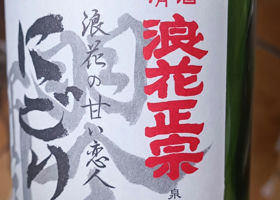 清酒
浪花正宗
泉
浪花の甘い恋人
にごり